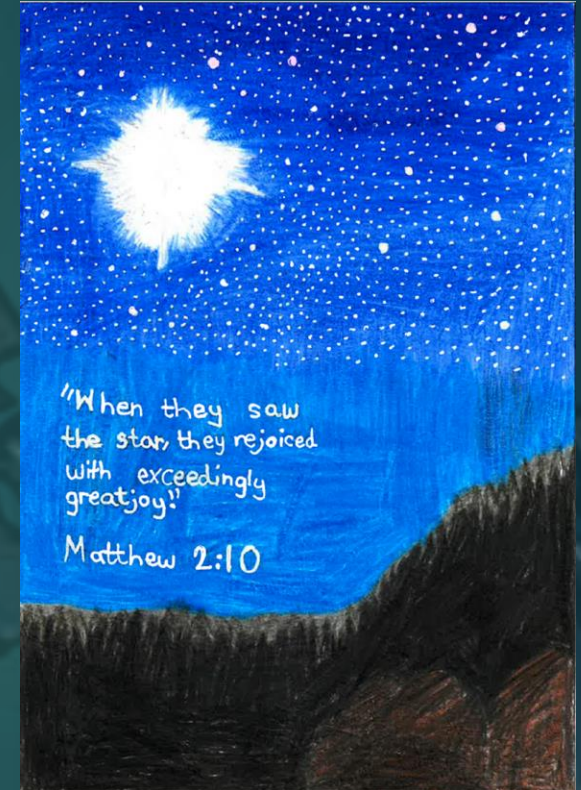 "When they saw
the star, they rejoiced
with exceedingly
greatjoy!"
Matthew 2:10